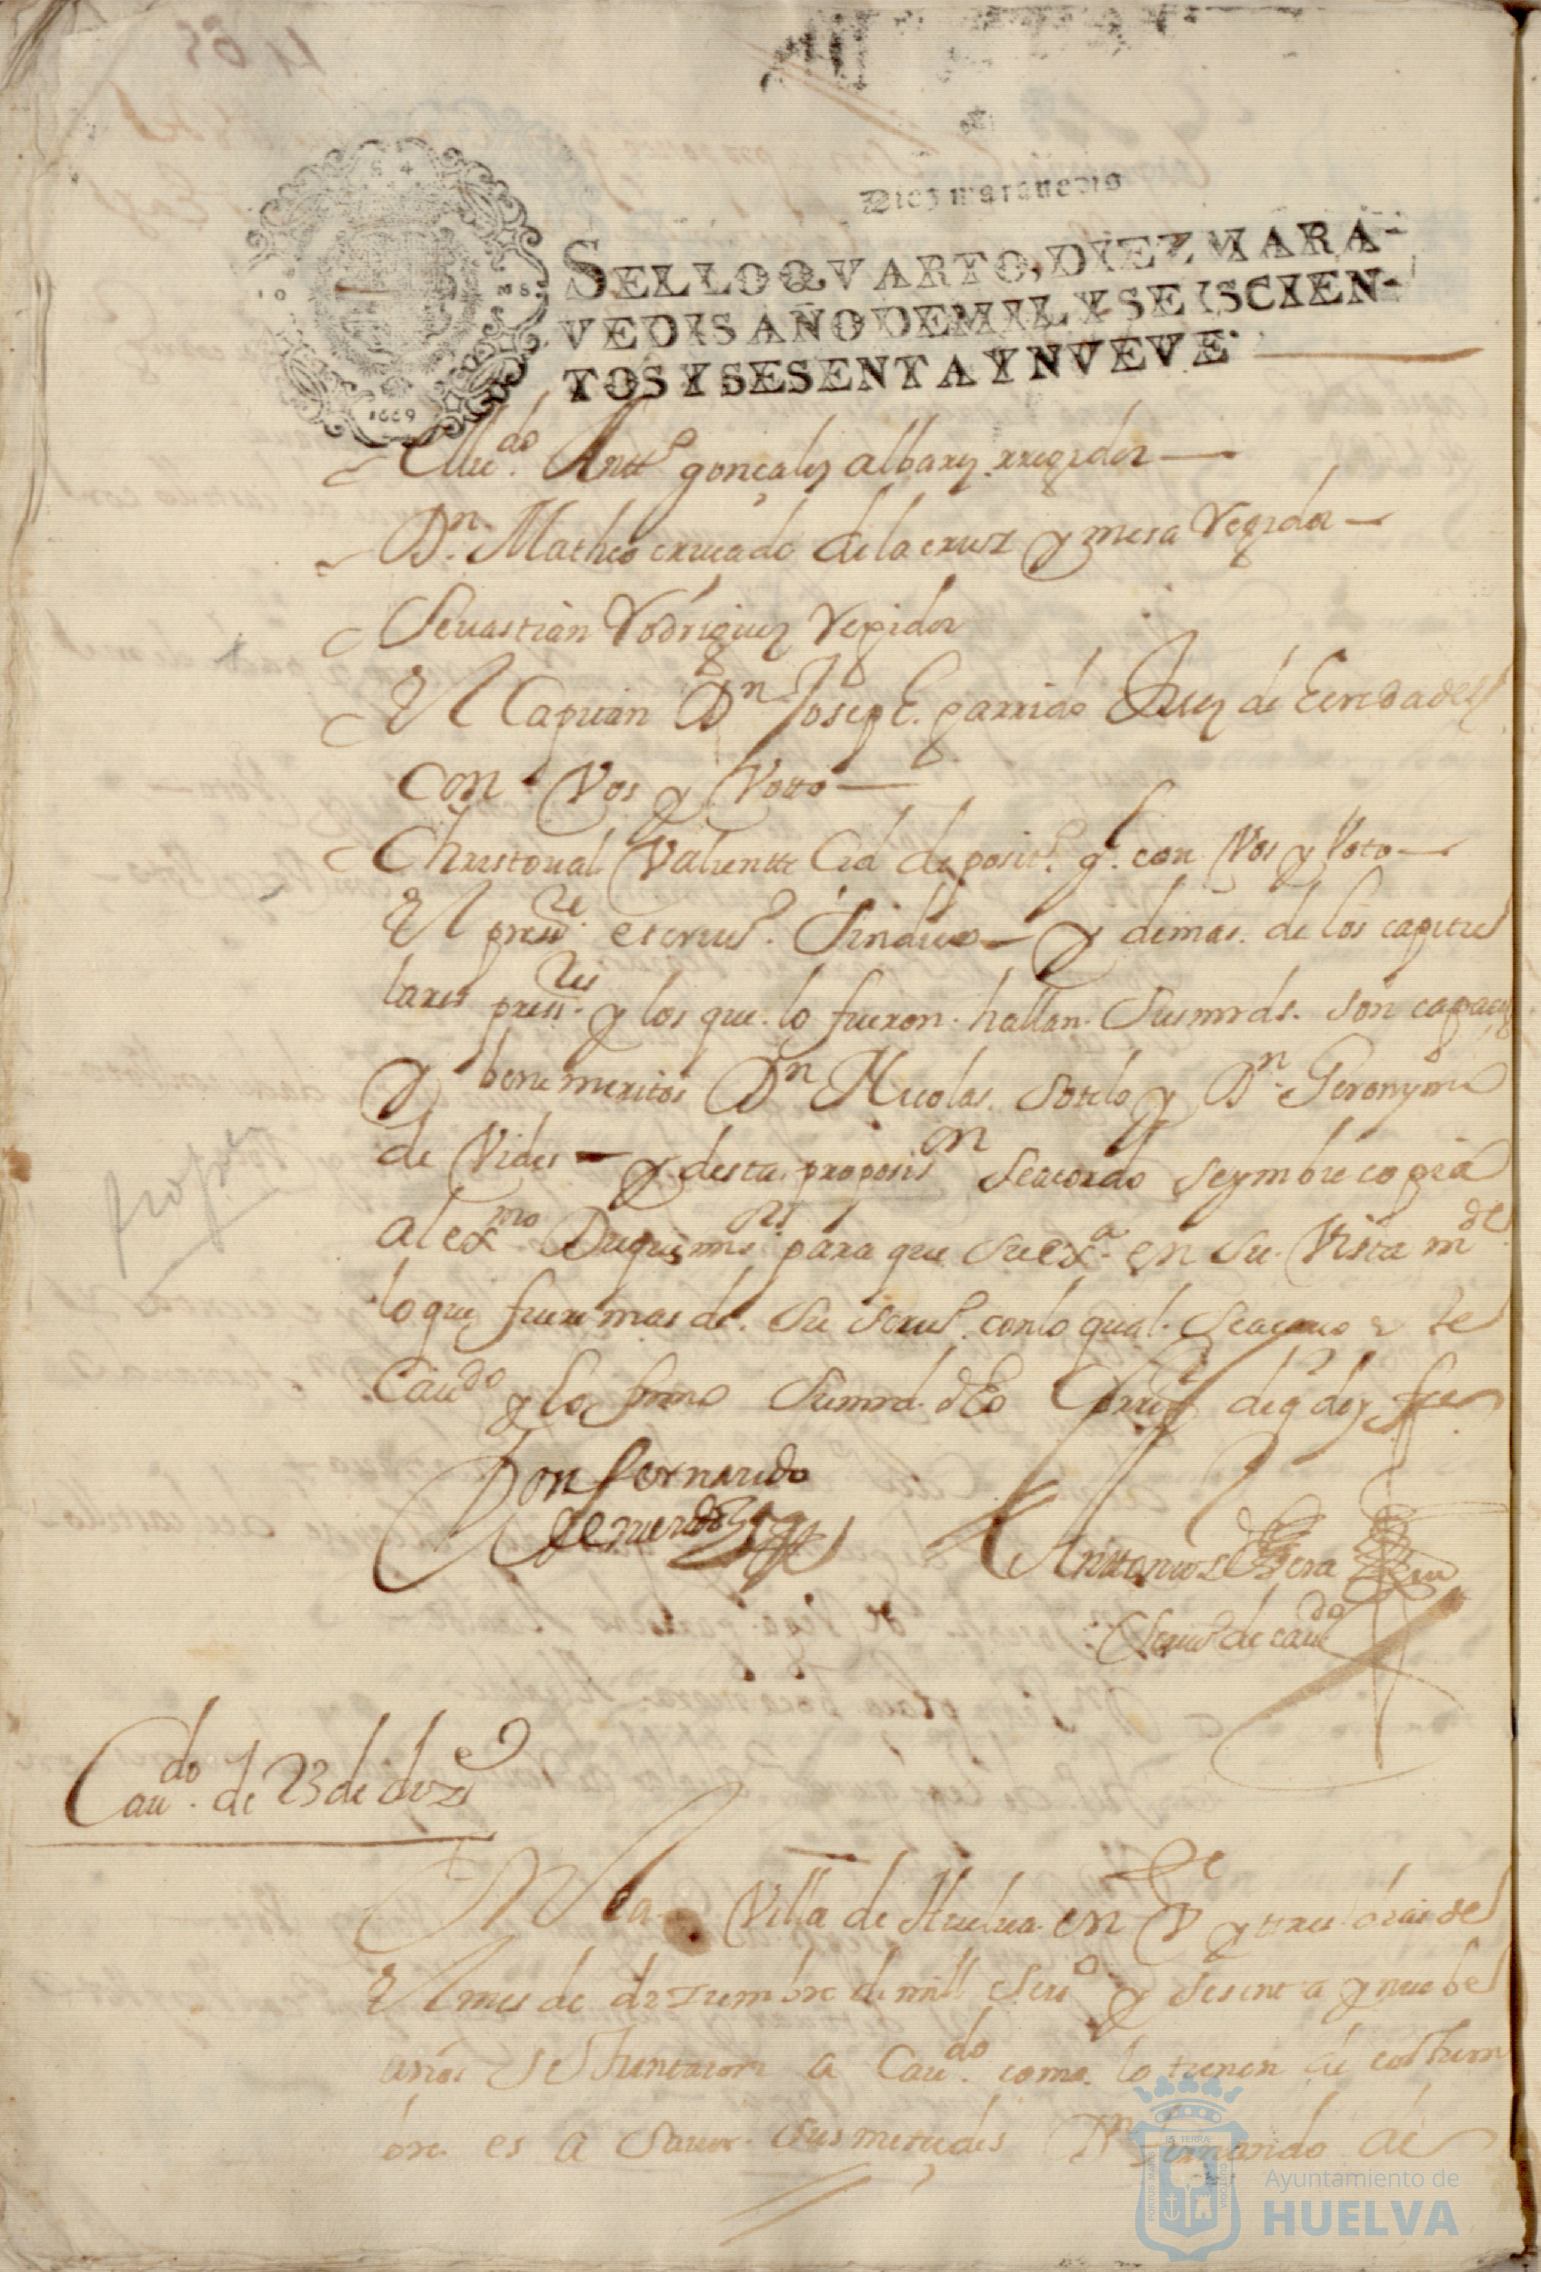 Diez maravedis
SELLO QVARTO, DIEZ MARA-
VEDIS AÑO DE MIL Y SEISCIEN-
TOS Y SESENTA Y NVEVE.
1669
Antt.º gonçales albarez rregidor
Dn. Matheo crucado de la cruz y mesa Regidor
Seuastian Rodriguez Regidor
El Capitan Dn Joseph garrido Juez de Eeredades
con Vos y Votto
Christoual Valiente Cid deposit.º g.l con Vos y Voto
El press.te escriu.º Sindico y demas de los capitu
lares press.tes y los que lo fueron hallan Susmrds. son capaces
y benemeritos Dn Nicolas Sotelo y Dn Geronymo
de Vides y desta proposis.on se acordo seymbie copia
al ex.mo Duque mi s.or para que su ex.a en su Vista m.de
lo que fuere mas de su seruº. con lo qual se acauo este
Cau.do y lo firmo Sumrd. dho Corr.or de q doy fee
Don fernando
Antonio
Scriu.º de cau.do
Cau.do de 23 de dize
En la Villa de Huelua en Vte y tres dias del
El mes de diziembre de mill seisº y sesenta y nuebe
años Se Juntaron a Cau.do como lo tienen de costum
bre es a sauer sus mercedes Dn fernando de
PORTUS MARIS ET TERRAE CUSTODIA
Ayuntamiento de
HUELVA